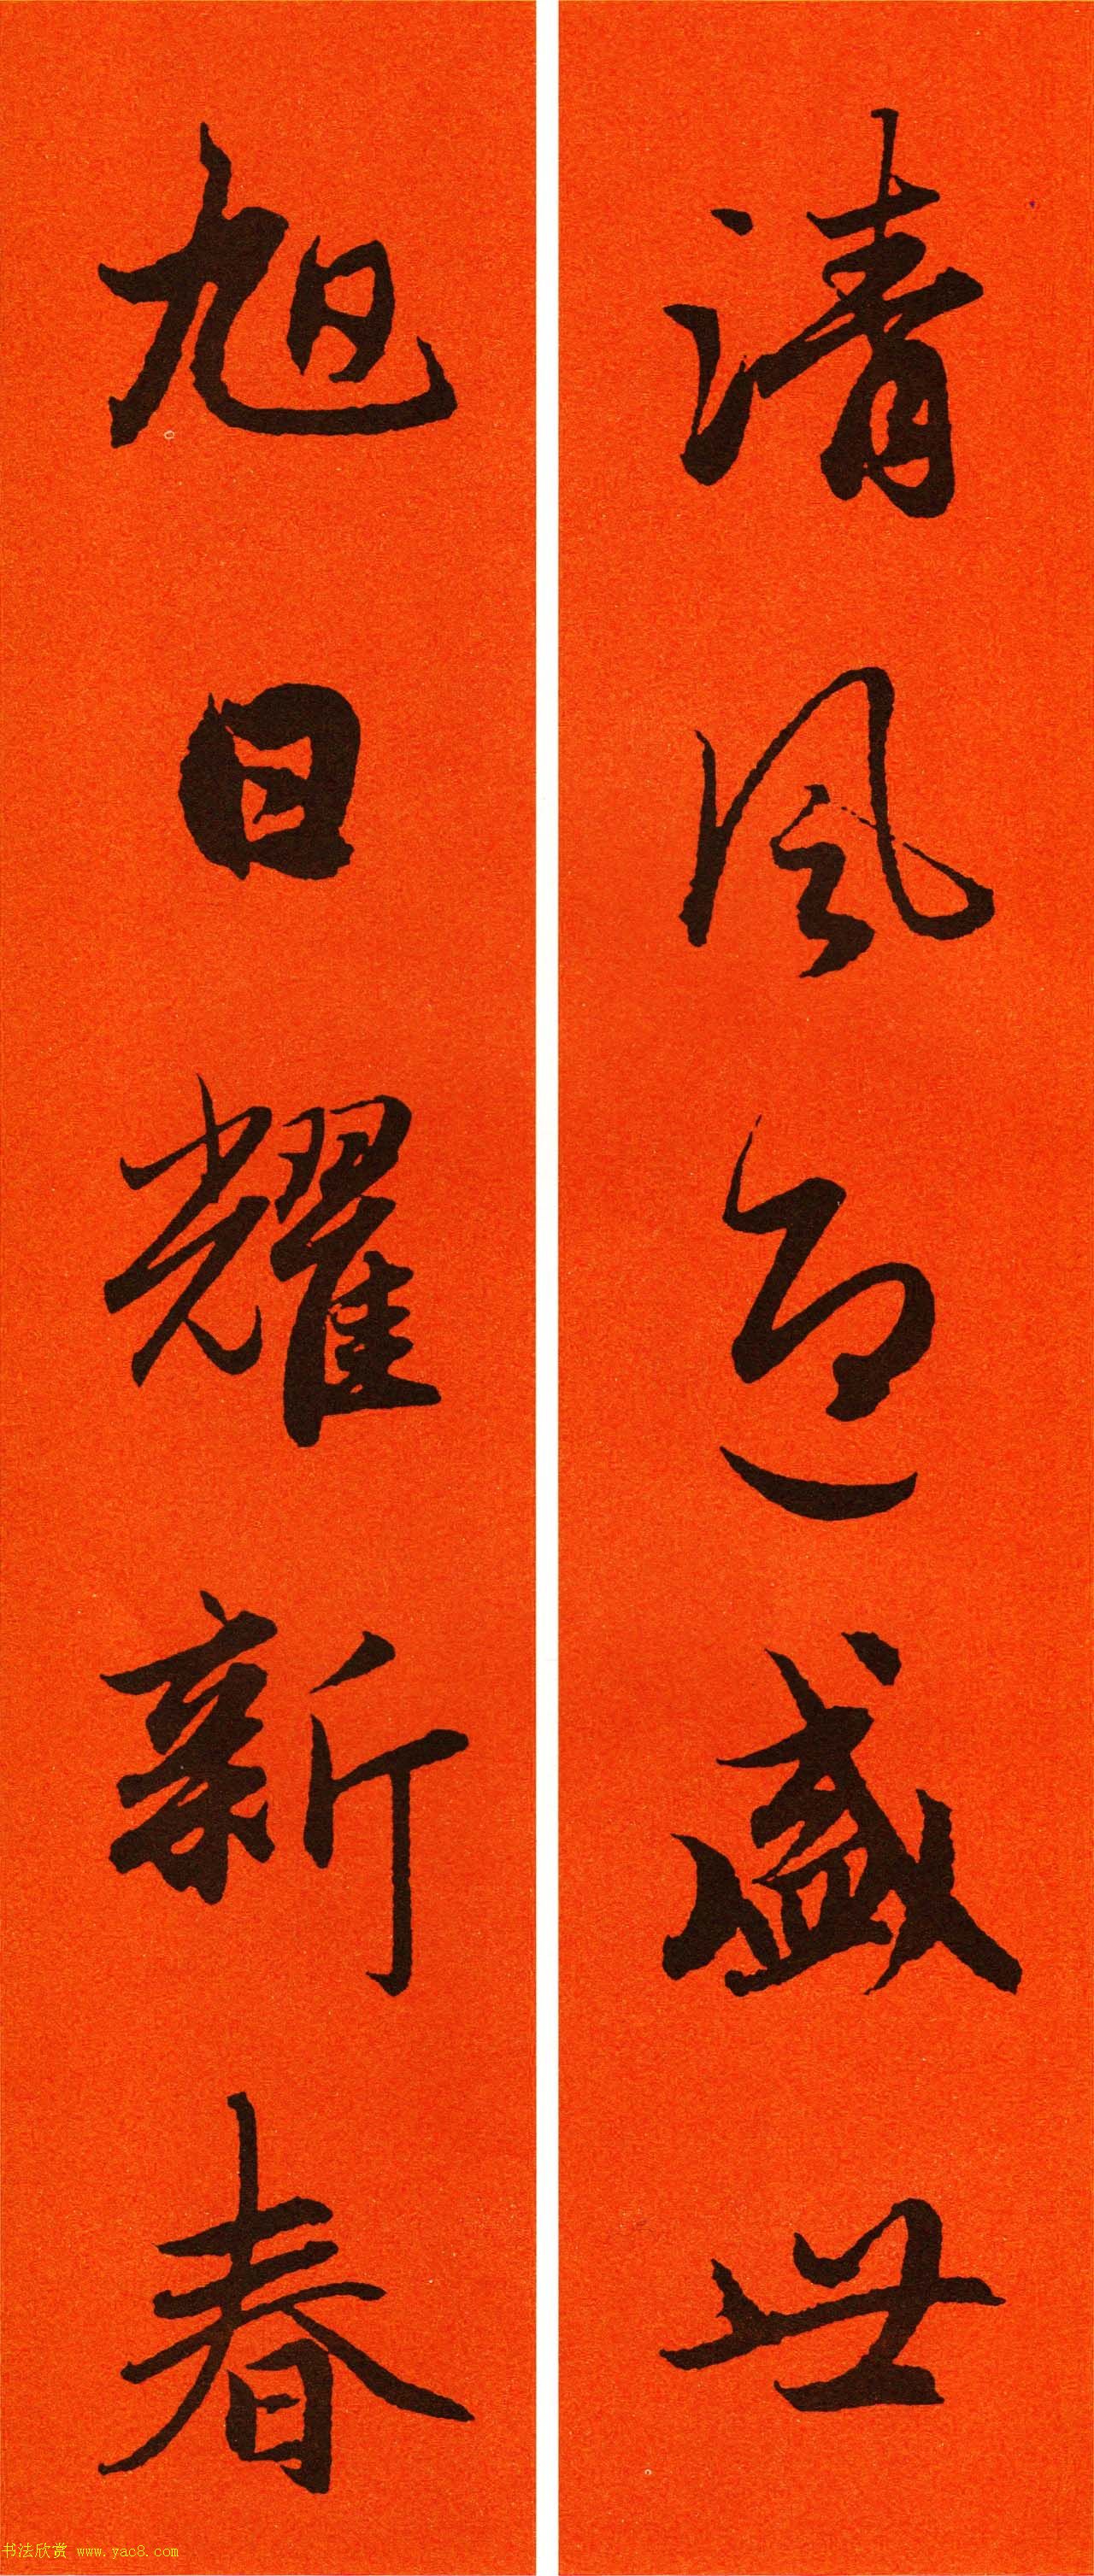 清風迎盛世
旭日耀新春
书法欣赏 www.yac8.com